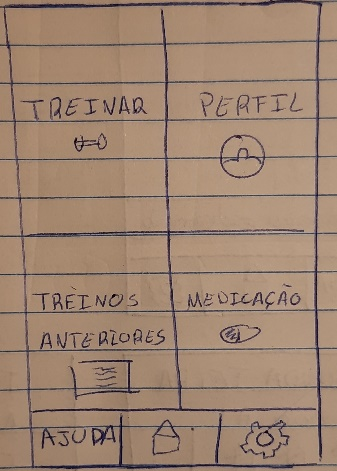 TREINAR
PERFIL
TREINOS
ANTERIORES
MEDICAÇÃO
AJUDA